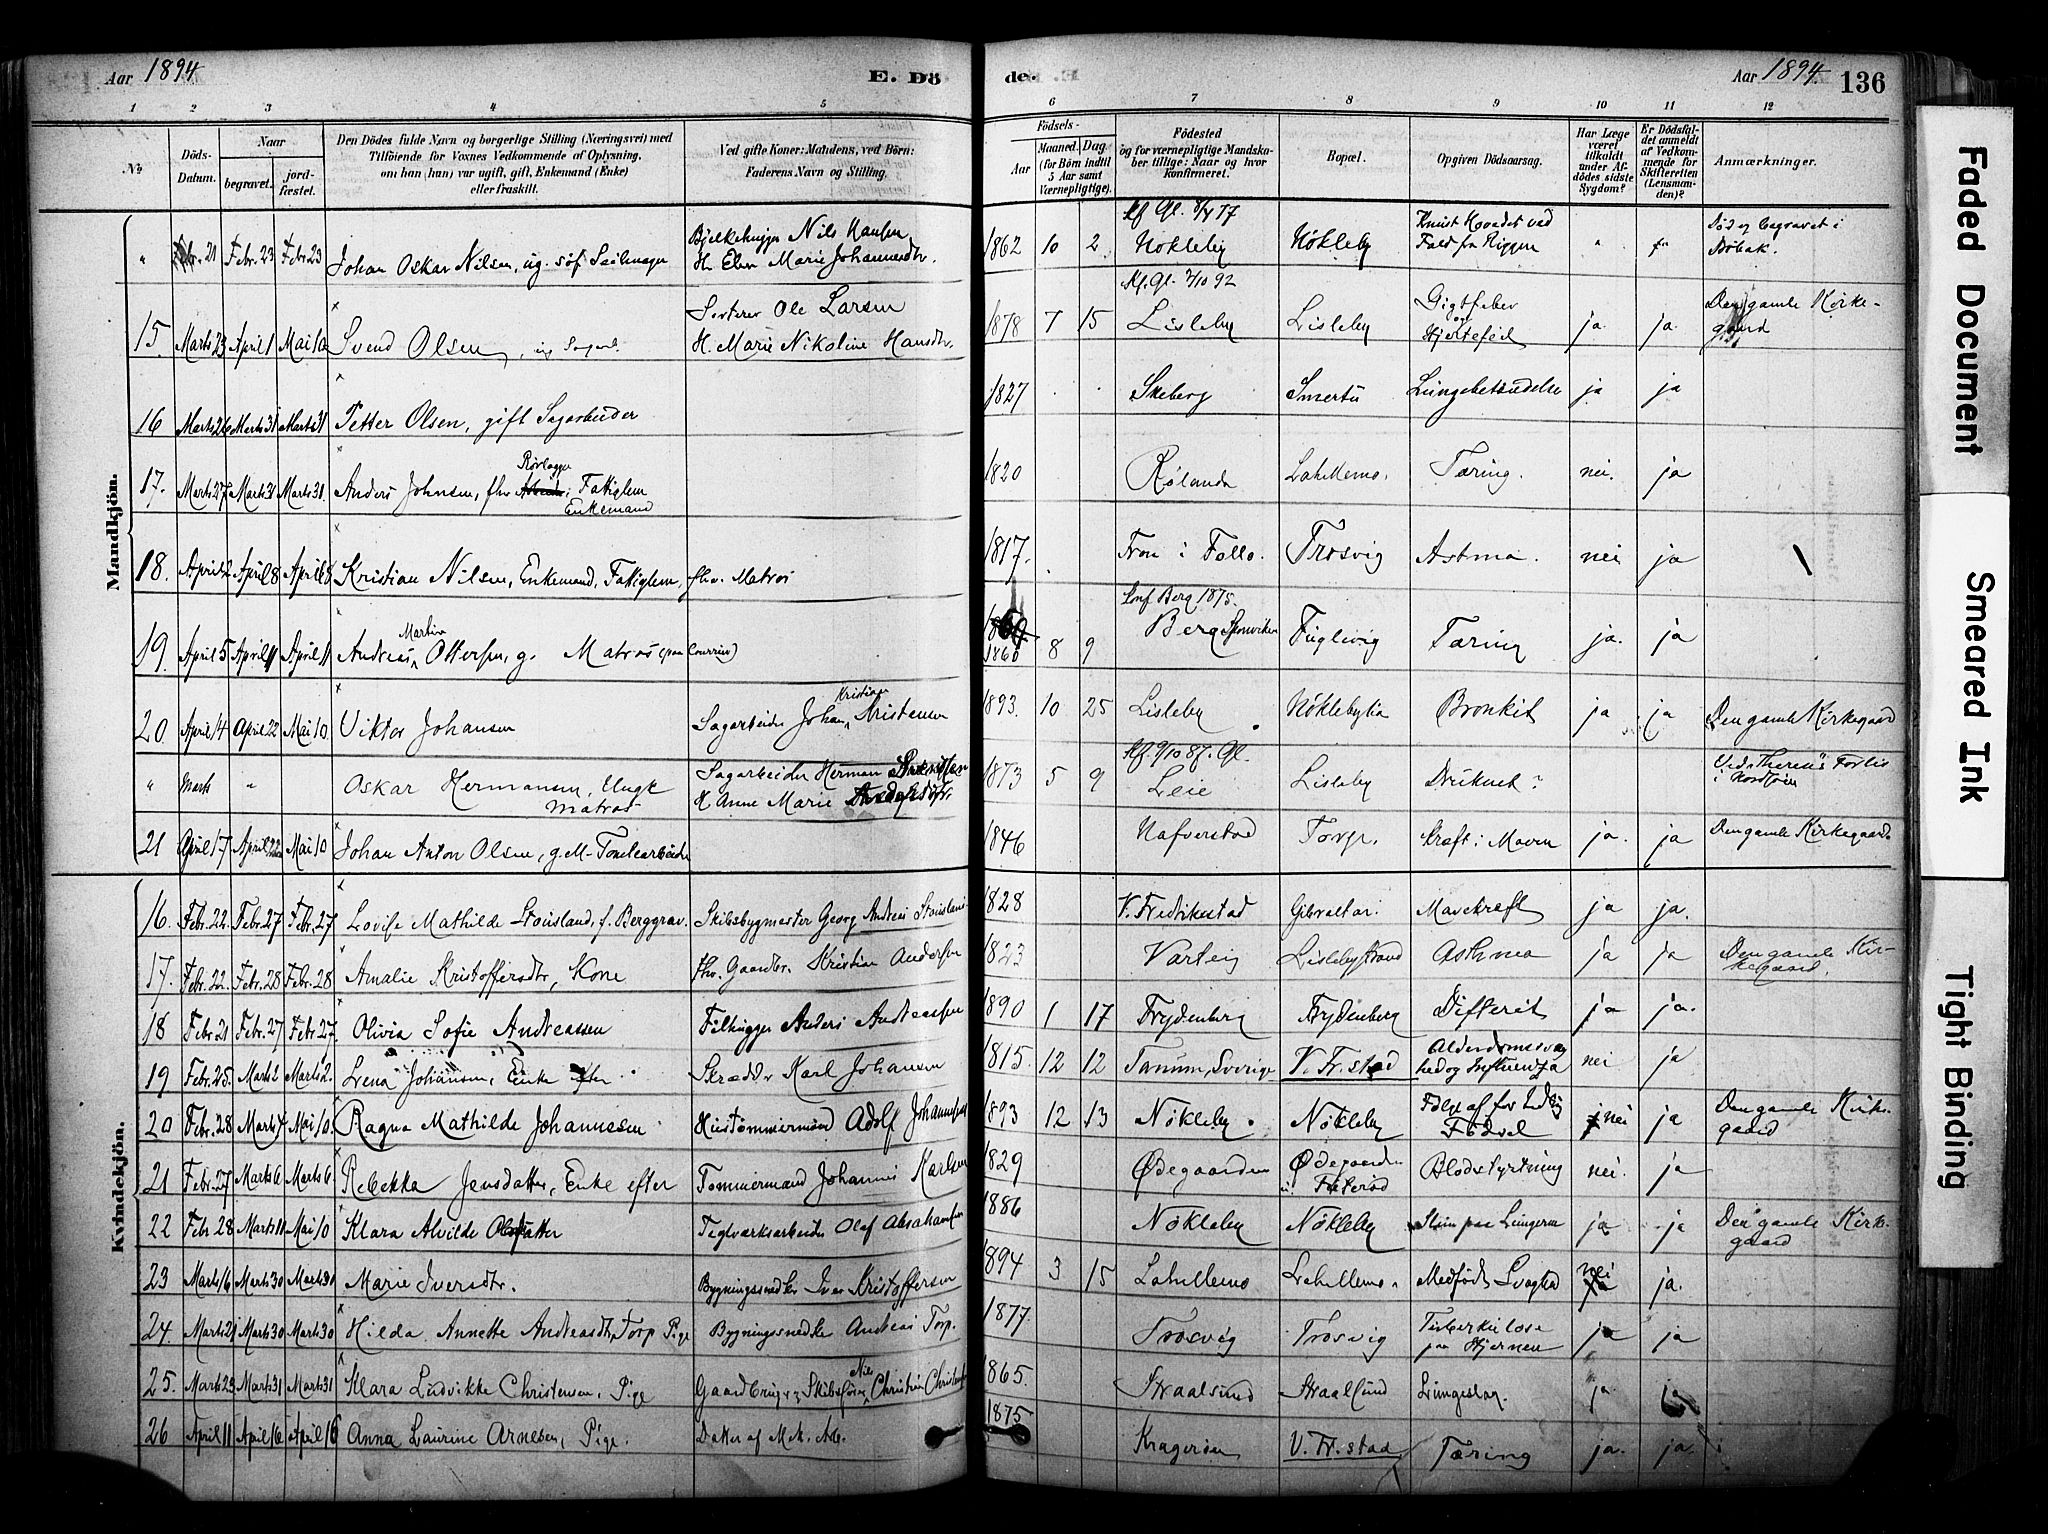 Aar 1894. E. Dö
de. Aar 1894. 136
1 2 3 4 5
6 7 8 9 10 11 12
No
Döds-Datum.
Naar
begravet.
jordfæstet.
Den Dödes fulde Navn og borgerlige Stilling (Næringsvei) med
Tilföiende for Voxnes Vedkommende af Oplysning,
om han (hun) var ugift, gift, Enkemand (Enke)
eller fraskilt.
Ved gifte Koner: Mandens, ved Börn:
Faderens Navn og Stilling.
Födsels-
Aar
Maaned. Dag.
(for Börn indtil
5 Aar samt
Værnepligtige).
Födested
og for værnepligtige Mandska-
ber tillige: Naar og hvor
Konfirmeret.
Bopæl.
Opgiven Dödsaarsag.
Har Læge
været
tilkaldt
under Af-
dödes sidste
Sygdom?
Er Dödsfal-
det anmeldt
af Vedkom-
mende for
Skifteretten
(Lensman-
den)?
Anmærkninger.
Mandkjön.
" Febr. 21 Febr. 23 Febr. 23 Johan Oskar Nilsen, ug. Nils Hansen
H. Marie Johannesdtr. 1862 10 2 Nökleby Nökleby Knust Hovedet ved
Fald fra Riggen Död og begravet i
15. Marts 23 April 1 Mai 10 Svend Olsen, Ole Larsen
H. Marie Nikoline Hansdtr. 1878 7 15 Lisleby Lisleby Gigtfeber
og
Hjertefeil ja. ja. Den gamle Kirke-
gaard
16 Marts 26 Marts 31 Marts 31 Petter Olsen, gift Sagarbeider 1827 Skeberg Smertu Lungebetændelse ja ja
17. Marts 27 Marts 31 Marts 31 Anders Johnsen, fhv. Fattiglem
Enkemand 1820 Lahellemo. Tæring. nei. ja
18. April 2 April 8 April 8 Kristian Nilsen, Enkemand, Fattiglem, fhv. Matros 1817. Fron i Follo. Trosvig Astma. nei ja
19. April 5 April 11 April 11 Andreas Martin Ottersen, g. Matros 1860 8 9 Konf Berg 1875.
Berg Sponviken Fuglevig Tæring ja. ja
20. April 14 April 22 Mai 10. Viktor Johansen Sagarbeider Johan Kristian Kristensen 1893. 10 25 Lisleby Nöklebylia Bronkit ja ja Den gamle Kirkegaard
" Marts " Oskar Hermansen, Ungk
Matros Sagarbeider Herman
H. Anne Marie 1873 5 9 Kf. 9/10 87. Gl.
Leie Lisleby Druknet?
i Nordsöen
21 April 17 April 22 Mai 10 Johan Anton Olsen, g. M. 1846 Nafverstad Torp. Kræft i Maven ja. ja Den gamle Kirkegaard
Kvindekjön.
16. Febr. 22. Febr. 27 Febr. 27 Lovise Mathilde Stousland, f. Berggrav. Skibsbygmester Georg Andreas Stousland 1828 V. Fredrikstad Gibraltar. Mavekræft ja ja.
17. Febr. 22. Febr. 28 Febr. 28 Amalie Kristoffersdtr, Kone fhv. Gaardbr. Kristian Andersen 1823 Varteig Lislebystrand Asthma ja ja Den gamle Kir-
kegaard.
18 Febr. 21 Febr. 27 Febr. 27. Olivia Sofie Andreassen Filhugger Anders Andreassen 1890 1 17 Frydenberg Frydenberg Difterit ja ja.
19 Febr. 25. Marts 2 Marts 2. Lena Johansen, Enke efter Skrædder Karl Johansen 1815. 12 12 Tanum, Sverige V. Fr. stad Alderdomssvag
hed og Influenza nei ja
20 Febr. 28 Marts 4 Mai 10. Ragna Mathilde Johannesen Hustömmermand Adolf Johannesen 1893 12 13 Nökleby. Nökleby Fölge af for tidlig
Födsel nei ja Den gamle Kirke-
gaard
21 Febr. 27 Marts 6 Marts 6 Rebekka Jensdatter, Enke efter Tømmermand Johannes Karlsen 1829 Ødegaarden Ødegaarden Blodstyrtning nei. ja
22 Febr. 28 Marts 11 Mai 10 Klara Alvilde Olafsdatter Teglværksarbeider Olaf Abrahamsen 1886 Nökleby Nökleby Slim paa Lungerne ja ja Den gamle Kirke-
gaard
23 Marts 16 Marts 30 Marts 30 Marie Iversdtr. Bygningssnedker Iver Kristoffersen 1894 3 15 Lahellemo Lahellemo. Medfödt Svaghed nei ja.
24. Marts 21 Marts 30 Marts 30 Hilda Annette Andreasdtr, Torp Pige Bygningssnedker Andreas Torp. 1877. Trosvig Trosvig Tuberkulose
paa Hjernen ja ja
25. Marts 23 Marts 31 Marts 31 Klara Ludvikke Christensen, Pige Gaardbruger & Skibsförer Nils Christian Christensen 1865. Straalsund Straalsund Lungeslag. ja ja
26 April 11 April 16 April 16 Anna Laurine Arnesen, Pige. Datter af 1875 Kragerøen V. Fr. stad Tæring ja. ja.
Faded Document
Smeared Ink
Tight Binding